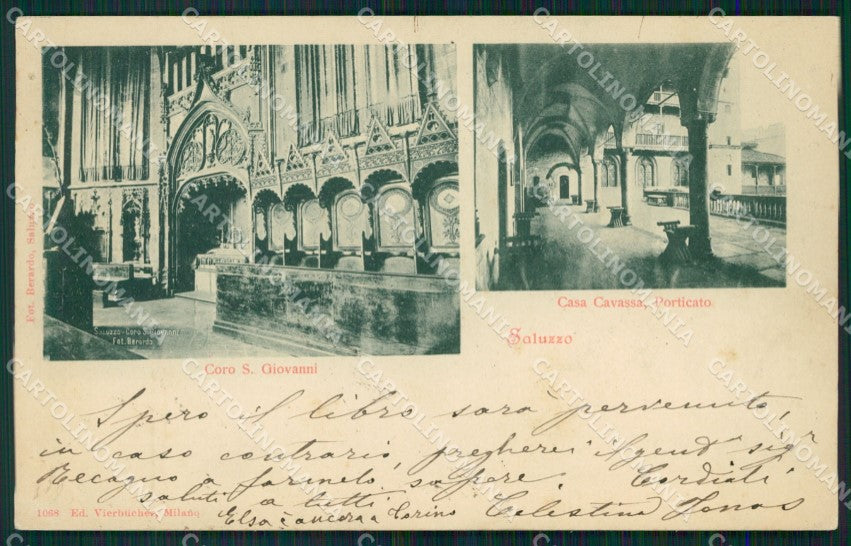 Fot. Berardo, Saluzzo
Saluzzo - Coro S. Giovanni
Fot. Berardo
Coro S. Giovanni
Casa Cavassa, Porticato
Saluzzo
Spero il libro sarà pervenuto,
in caso contrario, pregherei il gent° sigr
Recagno a farmelo sapere. Cordiali
saluti a tutti
Celestina
Elsa è ancora a Torino
1068 Ed. Vierbücher, Milano
CARTOLINOMANIA